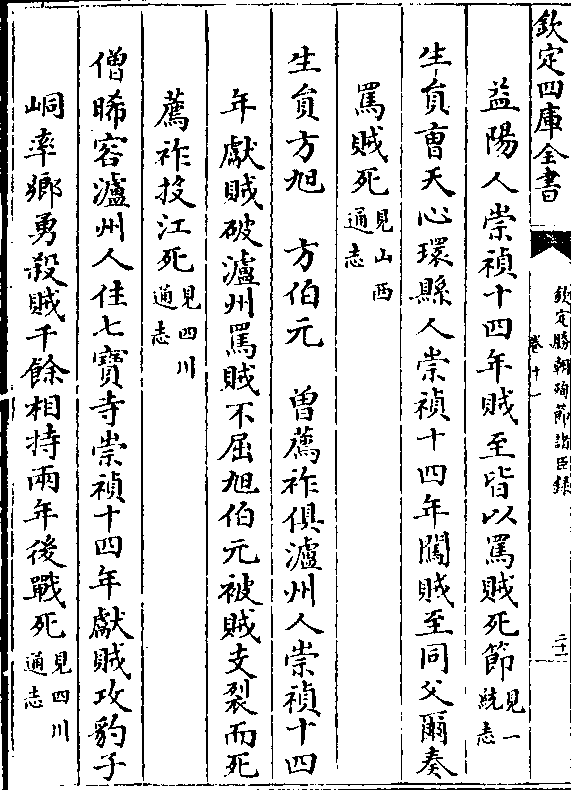 欽定四庫全書
欽定勝朝殉節諸臣錄
卷十一
二十一
益陽人崇禎十四年賊至皆以罵賊死節見一統志
生員曹天心環縣人崇禎十四年闖賊至同父爾奏
罵賊死見山西通志
生員方旭　方伯元　曾薦祚俱瀘州人崇禎十四
年獻賊破瀘州罵賊不屈旭伯元被賊支裂而死
薦祚投江死見四川通志
僧晞容瀘州人住七寶寺崇禎十四年獻賊攻豹子
峒率鄉勇殺賊千餘相持兩年後戰死見四川通志